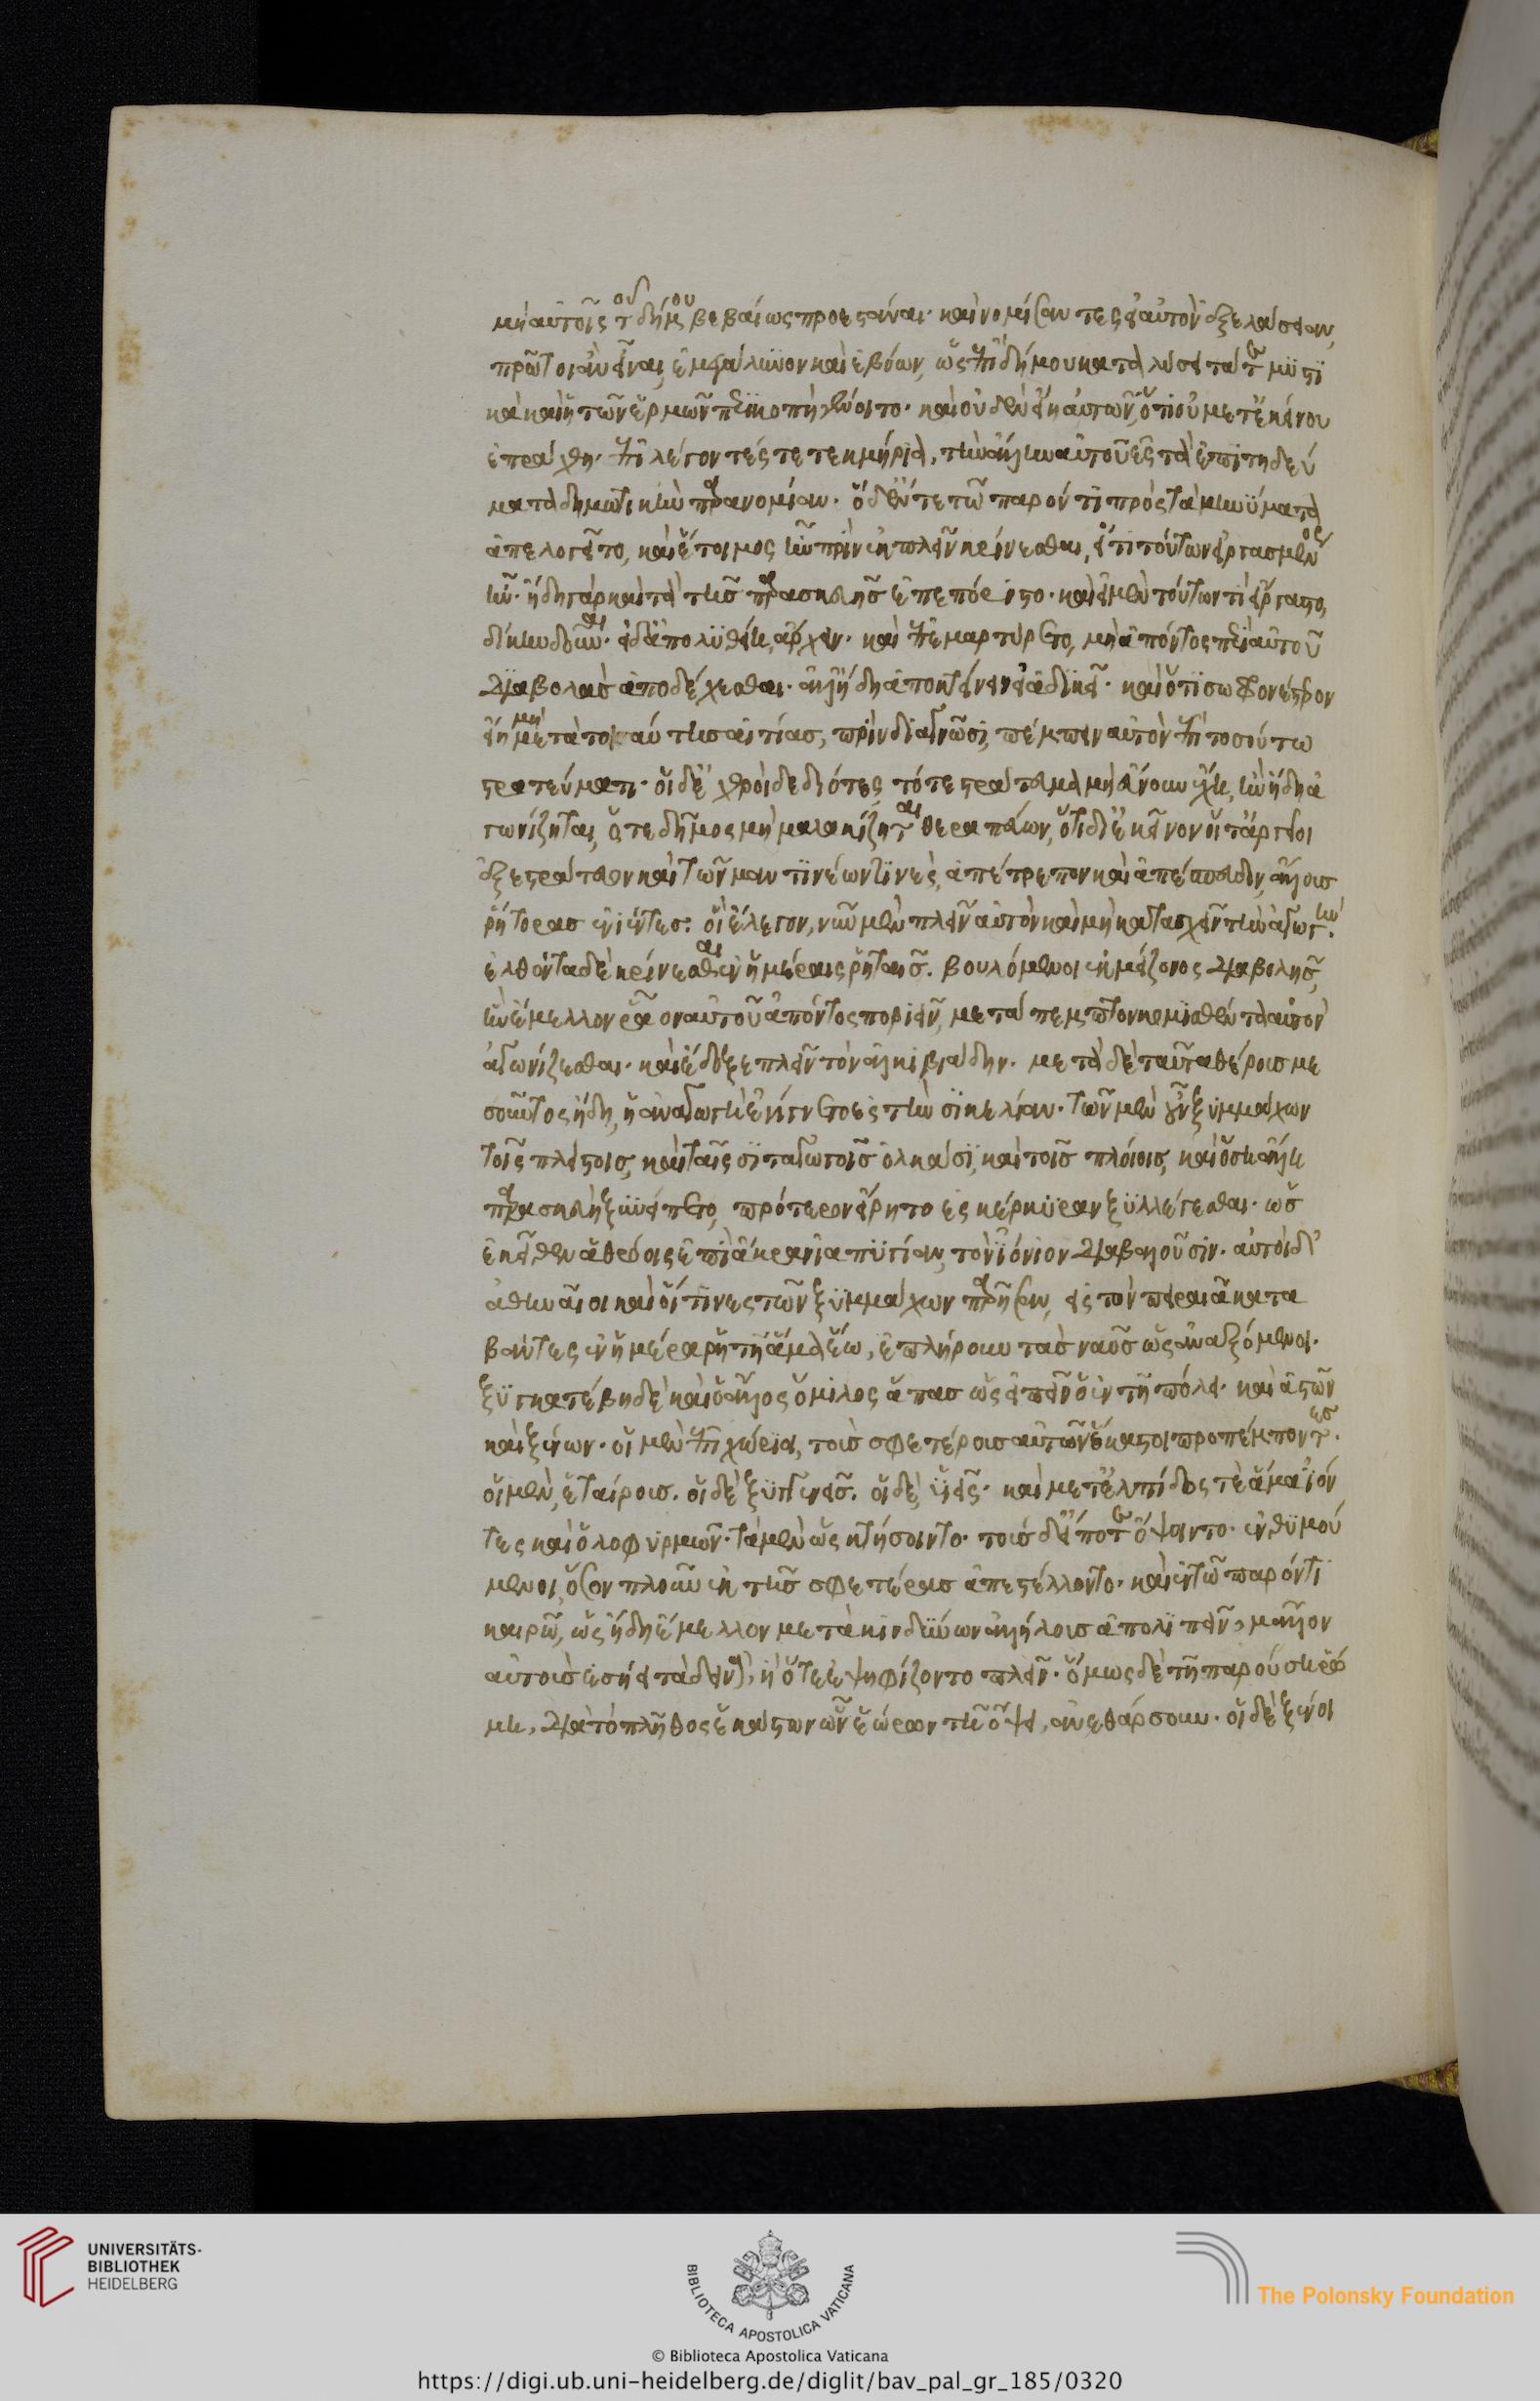 μὴ αὐτοῖς τοῦ δήμου βεβαίως προεστάναι· καὶ νομίσαντες εἰ αὐτὸν ἐξελάσειαν,
πρῶτοι ἂν εἶναι, ἐμεγάλυνον καὶ ἐβόων, ὡς ἐπὶ δήμου καταλύσει τά τε μυστι
κὰ καὶ ἡ τῶν ἑρμῶν περικοπὴ γένοιτο· καὶ οὐδὲν εἴη αὐτῶν, ὅτι οὐ μετ' ἐκείνου
ἐπράχθη· ἐπιλέγοντές τε τεκμήρια, τὴν ἄλλην αὐτοῦ ἐς τὰ ἐπιτηδεύ
ματα δημωτικὴν παρανομίαν· ὁ δ' ἔν τε τῶ παρόντι πρὸς τὰ μηνύματα
ἀπελογεῖτο, καὶ ἕτοιμος ἦν πρὶν ἐκπλεῖν κρίνεσθαι, εἴ τι τούτων εἰργασμένος
ἦν· ἤδη γὰρ καὶ τὰ τῆς παρασκευῆς ἐπεπόριστο· καὶ εἰ μὲν τούτων τι εἴργαστο,
δίκην δοῦναι· εἰ δ' ἀπολυθείη, ἄρχειν· καὶ ἐπεμαρτύρετο, μὴ ἀπόντος περὶ αὐτοῦ
διαβολὰς ἀποδέχεσθαι· ἀλλ' ἤδη ἀποκτείνειν εἰ ἀδικεῖ· καὶ ὅτι σωφρονέστερον
εἴη μὴ μετὰ τοιαύτης αἰτίας, πρὶν διαγνῶσι, πέμπειν αὐτὸν ἐπὶ τοσούτω
στρατεύματι· οἱ δ' ἐχθροὶ δεδιότες τό τε στράτευμα μὴ εὔνουν ἔχη, ἢν ἤδη ἀ
γωνίζηται, ὅ τε δῆμος μὴ μαλακίζηται θεραπεύων, ὅτι δι' ἐκεῖνον οἵ τ' ἀργεῖοι
ξυνεστράτευον καὶ τῶν μαντινέων τινὲς, ἀπέτρεπον καὶ ἀπέσπευδον, ἄλλους
ῥήτορας ἐνιέντες· οἳ ἔλεγον, νῦν μὲν πλεῖν αὐτὸν καὶ μὴ κατασχεῖν τὴν ἀγωγήν·
ἐλθόντα δὲ κρίνεσθαι ἐν ἡμέραις ῥηταῖς. βουλόμενοι ἐκ μείζονος διαβολῆς,
ἣν ἔμελλον ῥᾷον αὐτοῦ ἀπόντος ποριεῖν, μετάπεμπτον κομισθέντα αὐτὸν
ἀγωνίζεσθαι· καὶ ἔδοξε πλεῖν τὸν ἀλκιβιάδην. μετὰ δὲ ταῦτα θέρους με
σοῦντος ἤδη, ἡ ἀναγωγὴ ἐγίγνετο ἐς τὴν σικελίαν. τῶν μὲν οὖν ξυμμάχων
τοῖς πλείστοις, καὶ ταῖς σιταγωγοῖς ὁλκάσι, καὶ τοῖς πλοίοις, καὶ ὅση ἄλλη
παρασκευὴ ξυνείπετο, πρότερον εἴρητο ἐς κέρκυραν ξυλλέγεσθαι· ὡς
ἐκεῖθεν ἁθρόοις ἐπὶ ἄκραν ἰαπυγίαν, τὸν ἰόνιον διαβαλοῦσιν. αὐτοὶ δ'
ἀθηναῖοι καὶ οἵ τινες τῶν ξυμμάχων παρῆσαν, εἰς τὸν πειραιᾶ κατα
βάντες ἐν ἡμέρα ῥητῆ ἅμα ἕω, ἐπλήρουν τὰς ναῦς ὡς ἀναξόμενοι.
ξυγκατέβη δὲ καὶ ὁ ἄλλος ὅμιλος ἅπας ὡς εἰπεῖν ὁ ἐν τῆ πόλει· καὶ ἀστῶν
καὶ ξένων. οἱ μὲν ἐπιχώριοι, τοὺς σφετέρους αὐτῶν ἕκαστοι προπέμποντες·
οἱ μὲν, ἑταίρους. οἱ δὲ ξυγγενεῖς. οἱ δὲ, υἱεῖς· καὶ μετ' ἐλπίδος τε ἅμα ἰόν
τες καὶ ὀλοφυρμῶν· τὰ μὲν ὡς κτήσοιντο· τοὺς δ' εἴ ποτε ὄψοιντο· ἐνθυμού
μενοι, ὅσον πλοῦν ἐκ τῆς σφετέρας ἀπεστέλλοντο· καὶ ἐν τῶ παρόντι
καιρῶ, ὡς ἤδη ἔμελλον μετὰ κινδύνων ἀλλήλους ἀπολιπεῖν, μᾶλλον
αὐτοὺς ἐσήει τὰ δεινὰ, ἢ ὅτε ἐψηφίζοντο πλεῖν. ὅμως δὲ τῆ παρούση ῥώ
μη, διὰ τὸ πλῆθος ἑκάστων ὧν ἑώρων τῆ ὄψει, ἀνεθάρσουν. οἱ δὲ ξένοι
UNIVERSITÄTS-
BIBLIOTHEK
HEIDELBERG
BIBLIOTECA APOSTOLICA VATICANA
The Polonsky Foundation
© Biblioteca Apostolica Vaticana
https://digi.ub.uni-heidelberg.de/diglit/bav_pal_gr_185/0320